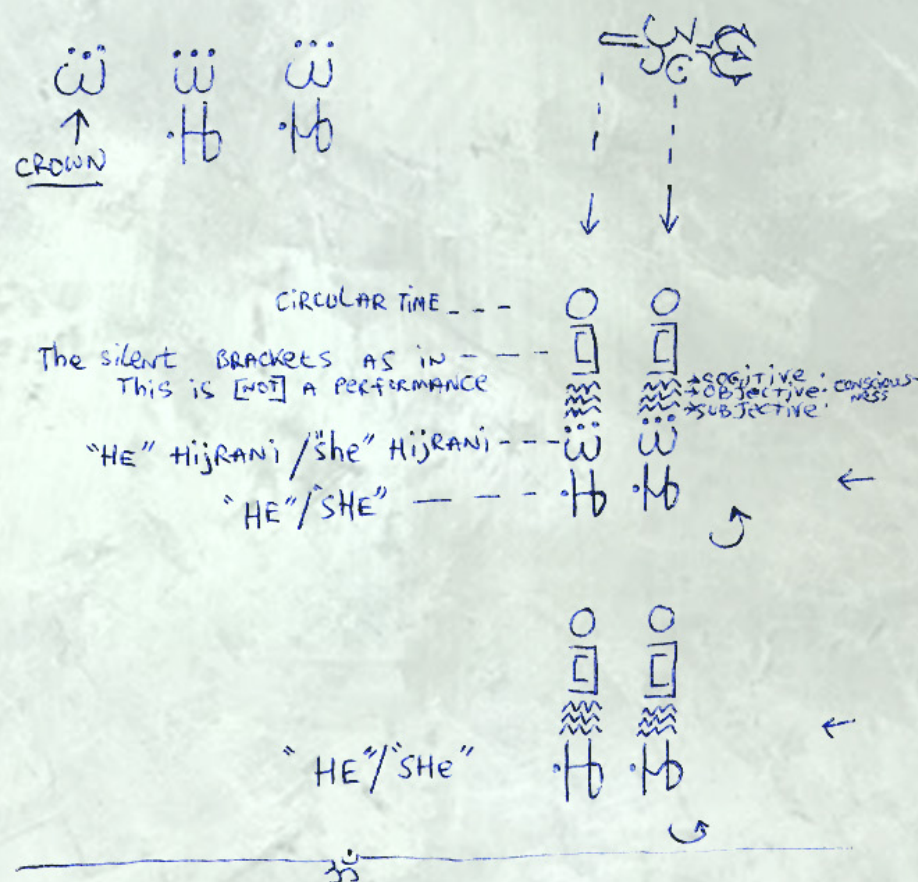 CROWN
CIRCULAR TIME
The silent BRACKETS AS IN
This is [NOT] A PERFORMANCE
COGITIVE
OBJECTIVE CONSCIOUSNESS
SUBJECTIVE
"HE" HijRANi / "she" HijRANi
"HE"/"SHE"
"HE"/"SHe"